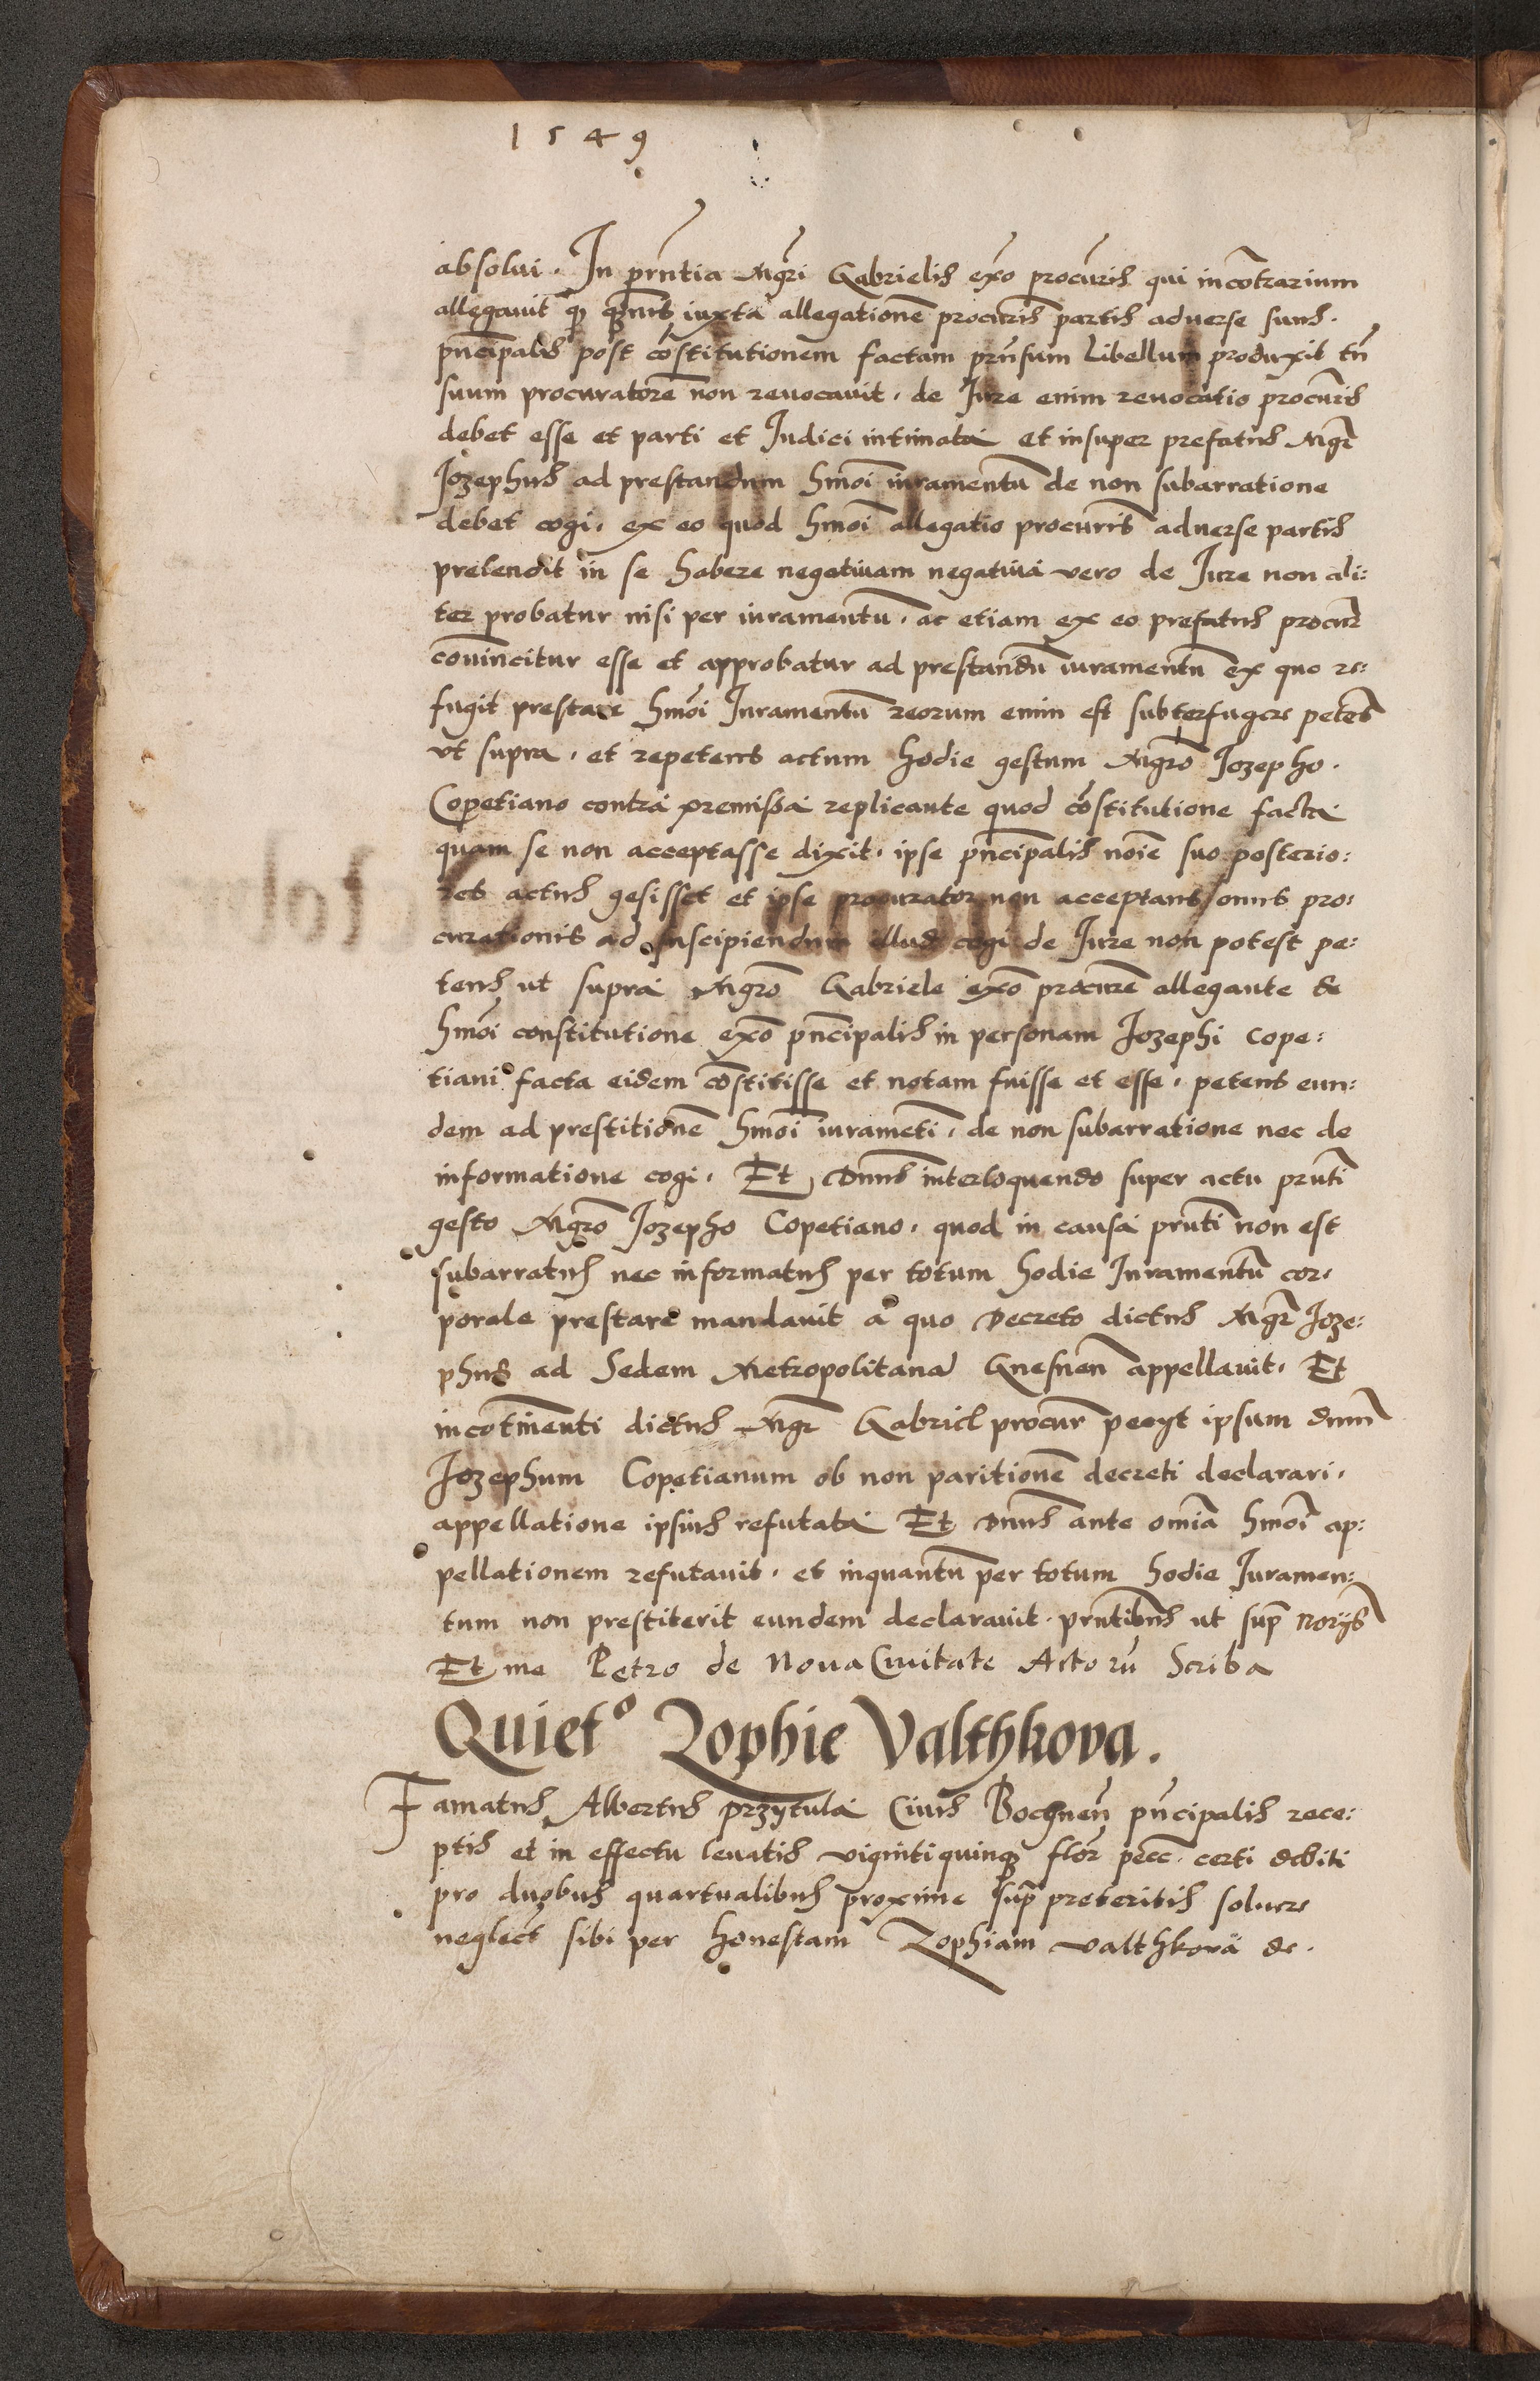 1549
absolui. In pñtia Mgri Gabrielis exõ procũris qui in cõtrarium
allegauit q̃ quis iuxta allegationẽ procuris partis aduerse suus.
pñcipalis post cõstitutionem factam prñsum Libellum produxit tñ
suum procuratorẽ non reuocauit. de Jure enim reuocatio procũris
debet esse et parti et Judici intimata et insuper prefatus Mgr
Jozephus ad prestandum hmõi iuramentũ de non subarratione
debet cogi. ex eo quod hmõi allegatio procurris aduerse partis
pretendit in se habere negatiuam negatiua vero de Jure non ali:
ter probatur nisi per iuramentũ. ac etiam ex eo prefatus procur
conuincitur esse et approbatur ad prestandũ iuramentũ ex quo re:
fugit prestare hmõi Juramentũ reorum enim est subterfugere petẽs
vt supra. et repetens actum hodie gestum Mgrõ Jozepho.
Copetiano contra premissa replicante quod cõstitutione facta
quam se non acceptasse dixit. ipse pñcipalis noĩe suo posterio:
res actus gesisset et ipse procurator non acceptans onus pro:
curationis ad suscipiendum illud cogi de Jure non potest pe:
tens ut supra Mgrõ Gabriele exõ procurẽ allegante de
hmõi constitutione exõ pñcipalis in personam Jozephi Cope:
tiani facta eidem cõstitisse et notam fuisse et esse. petens eun:
dem ad prestitionẽ hmõi iuramẽti. de non subarratione nec de
informatione cogi. Et Dñus interloquendo super actu prñti
gesto Mgrõ Jozepho Copetiano. quod in causa prñti non est
subarratus nec informatus per totum hodie Juramentũ cor:
porale prestare mandauit a quo Decreto dictus Mgr Joze:
phus ad Sedem Metropolitanã Gnesneñ appellauit. Et
incõtinenti dictus Mgr Gabriel procur petyt ipsum dnũ
Jozephum Copetianum ob non paritionẽ decreti declarari.
appellatione ipsius refutata Et Dñus ante omĩa hmõi ap:
pellationem refutauit. et inquantũ per totum hodie Juramen:
tum non prestiterit eundem declarauit. prñtibus ut sup̃ Norijs
Et me Petro de Noua Ciuitate Actorũ Scriba
Quiet° Zophie Valthkova.
Famatus Albertus Przytula Ciuis Bochneñ pñcipalis rece:
ptis et in effectu leuatis viginti quinq3 flor pecc. certi debiti
pro duobus quartualibus proxime sup̃ preteritis soluere
neglect sibi per honestam Zophiam Valthkovã de.